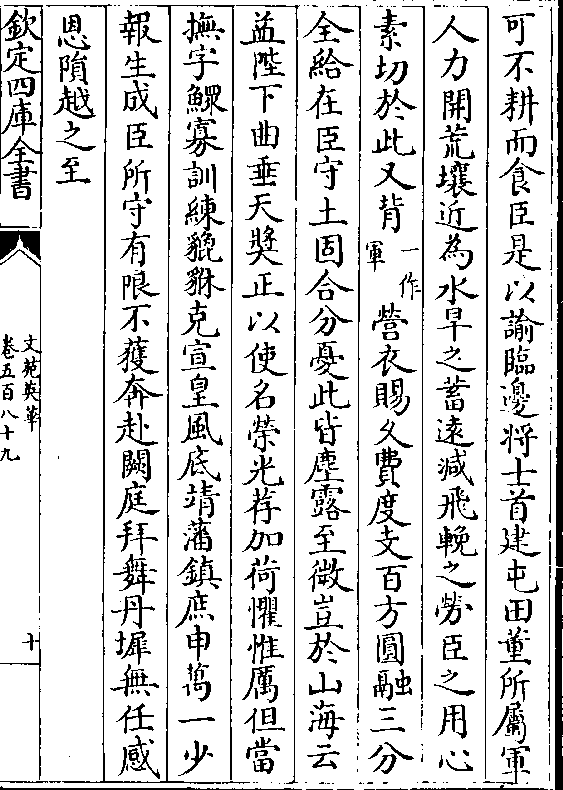 可不耕而食臣是以諭臨邊將士首建屯田董所屬軍
人力開荒壤近為水旱之蓄遠減飛輓之勞臣之用心
素切於此又背一作軍營衣賜久費度支百方圓融三分
全給在臣守土固合分憂此皆塵露至微豈於山海云
益陛下曲垂天奬正以使名榮光荐加荷懼惟厲但當
撫字鰥寡訓練貔貅克宣皇風底靖藩鎮庶申萬一少
報生成臣所守有限不獲奔赴闕庭拜舞丹墀無任感
恩隕越之至
欽定四庫全書
文苑英華
卷五百八十九
十